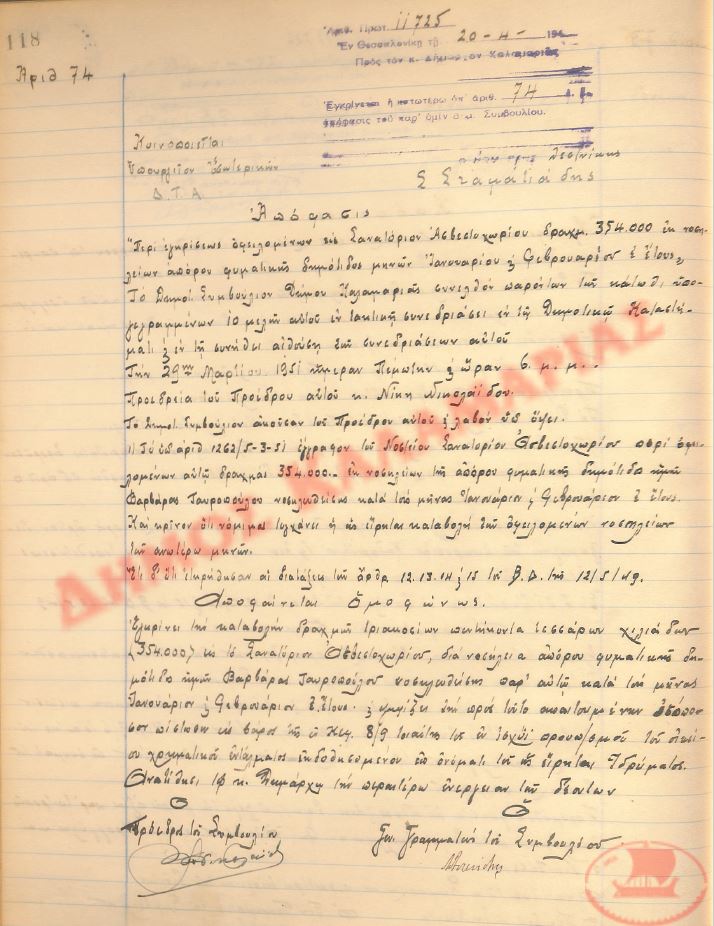 118
Αριθ 74
Αριθ. Πρωτ. 11725
Ἐν Θεσσαλονίκῃ τῇ 20-4- 195
Πρὸς τὸν κ. Δήμαρχον Καλαμαριᾶς
Ἐγκρίνεται ἡ κατωτέρω ὑπ' ἀριθ. 74
ἀπόφασις τοῦ παρ' ὑμῖν Δημ. Συμβουλίου.
Κοινοποιεῖται
Ὑπουργεῖον Ἐσωτερικῶν
Δ.Τ.Α
Σ Σταματιάδης
Ἀπόφασις
"Περὶ ἐγκρίσεως ὀφειλομένων εἰς Σανατόριον Ἀσβεστοχωρίου δραχμ. 354.000 ἐκ νοση-
λείων ἀπόρου φυματικῆς δημότιδος μηνῶν Ἰανουαρίου & Φεβρουαρίου ἐ. ἔτους„
Τὸ Δημοτ. Συμβούλιον Δήμου Καλαμαριᾶς συνελθὸν παρόντων τῶν κάτωθι ὑπο-
γεγραμμένων 10 μελῶν αὐτοῦ ἐν τακτικῇ συνεδριάσει ἐν τῷ Δημοτικῷ Καταστή-
ματι & ἐν τῇ συνήθει αἰθούσῃ τῶν συνεδριάσεων αὐτοῦ
Τὴν 29ην Μαρτίου 1951 ἡμέραν Πέμπτην & ὥραν 6 μ.μ.
Προεδρείᾳ τοῦ Προέδρου αὐτοῦ κ. Νίκη Νικολαΐδου.
Τὸ Δημοτ. Συμβούλιον ἀκοῦσαν τοῦ Προέδρου αὐτοῦ & λαβὸν ὑπ' ὄψει.
1) Τὸ ὑπ' ἀριθ 1262/5-3-51 ἔγγραφον τοῦ Νοσ/είου Σανατορίου Ἀσβεστοχωρίου περὶ ὀφει-
λομένων αὐτῷ δραχμάς 354.000.- ἐκ νοσηλείων τῆς ἀπόρου φυματικῆς δημότιδος ἡμῶν
Βαρβάρας Ταυροπούλου νοσηλευθείσης κατὰ τοὺς μῆνας Ἰανουάριον & Φεβρουάριον ἐ. ἔτους.
Καὶ κρῖνον ὅτι νόμιμος τυγχάνει ἡ ὡς εἴρηται καταβολὴ τῶν ὀφειλομένων νοσηλείων
τῶν ἀνωτέρω μηνῶν.
Ἔτι δὲ ὅτι ἐτηρήθησαν αἱ διατάξεις τῶν ἄρθρ. 12.13.14 & 15 τοῦ Β.Δ. τῆς 12/5/49.
Ἀποφαίνεται Ὁμοφώνως.
Ἐγκρίνει τὴν καταβολὴν δραχμῶν τριακοσίων πεντήκοντα τεσσάρων χιλιάδων
(354.000) εἰς τὸ Σανατόριον Ἀσβεστοχωρίου, διὰ νοσήλεια ἀπόρου φυματικῆς δη-
μότιδος ἡμῶν Βαρβάρας Ταυροπούλου νοσηλευθείσης παρ' αὐτῷ κατὰ τοὺς μῆνας
Ἰανουάριον & Φεβρουάριον ἐ. ἔτους. & ψηφίζει τὴν πρὸς τοῦτο ἀπαιτουμένην
πίστωσιν εἰς βάρος τῆς Κεφ. 8/9 τοῦ ἐν ἰσχύϊ προϋπ/σμοῦ τοῦ
χρηματικοῦ ἐντάλματος ἐκδοθησομένου ἐπ' ὀνόματι τοῦ ὡς εἴρηται Ἱδρύματος.
Ἀνατίθησι τῷ κ. Δημάρχῳ τὴν περαιτέρω ἐνέργειαν τῶν δεόντων
Ὁ Ὁ
Πρόεδρος τοῦ Συμβουλίου Γεν. Γραμματεὺς τοῦ Συμβουλίου
ΔΗΜΟΣ ΚΑΛΑΜΑΡΙΑΣ